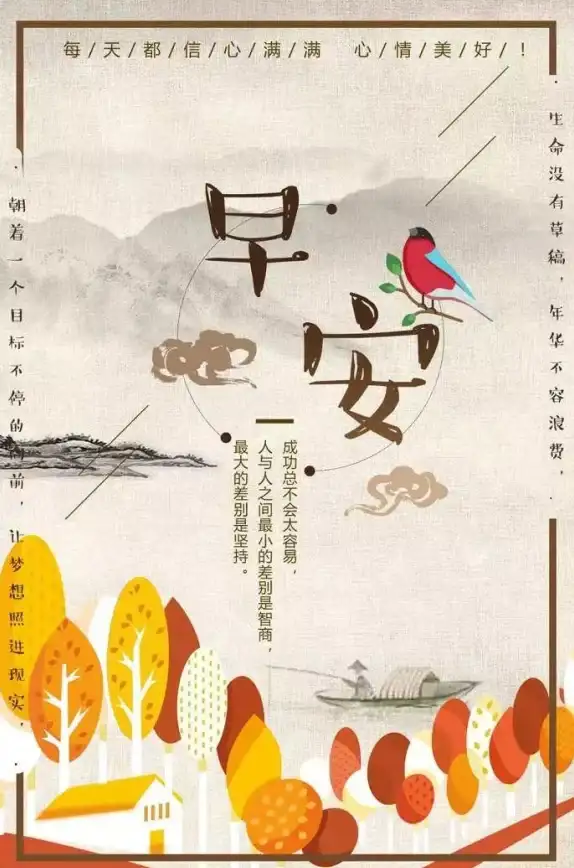 每/天/都/信/心/满/满 心/情/美/好/！
早安
·生命没有草稿，年华不容浪费，·
成功总不会太容易，
人与人之间最小的差别是智商，
最大的差别是坚持。
·朝着一个目标不停的向前，让梦想照进现实，·